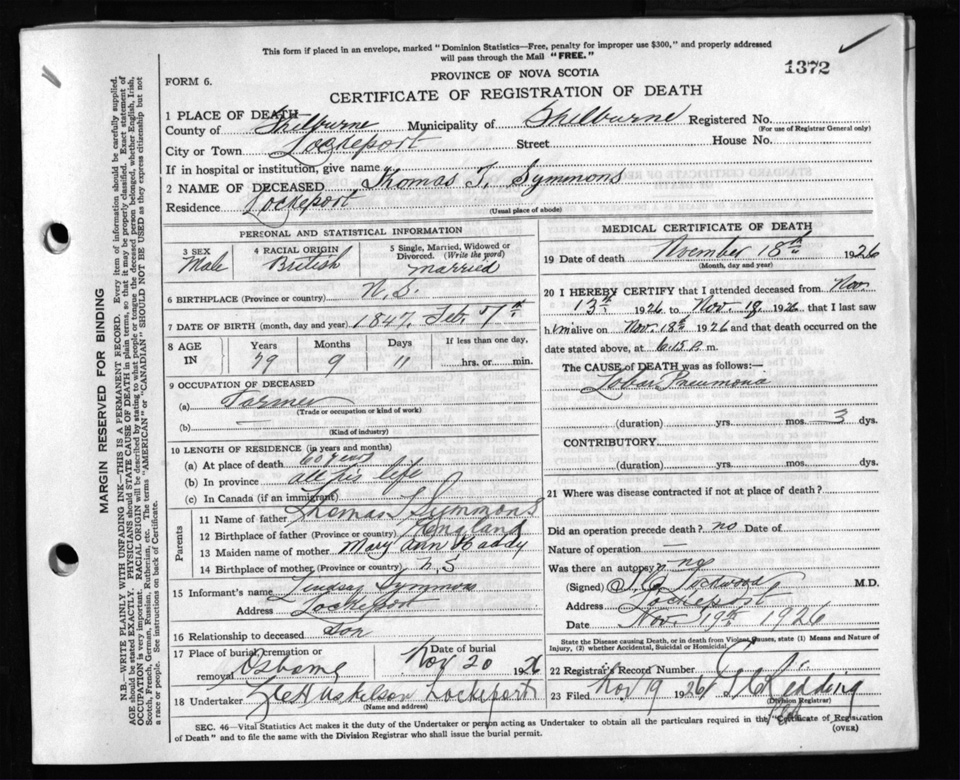 This form if placed in an envelope, marked "Dominion Statistics—Free, penalty for improper use $300," and properly addressed
will pass through the Mail "FREE."
1372
PROVINCE OF NOVA SCOTIA
FORM 6.
CERTIFICATE OF REGISTRATION OF DEATH
1 PLACE OF DEATH—
County of Shelburne Municipality of Shelburne Registered No.
(For use of Registrar General only)
City or Town Lockeport Street House No.
If in hospital or institution, give name
2 NAME OF DECEASED Thomas T. Symmons
Residence Lockeport
(Usual place of abode)
PERSONAL AND STATISTICAL INFORMATION
3 SEX Male
4 RACIAL ORIGIN British
5 Single, Married, Widowed or Divorced. (Write the word) married
6 BIRTHPLACE (Province or country) N.S.
7 DATE OF BIRTH (month, day and year) 1847. Feb. 7th
8 AGE IN Years Months Days If less than one day,
79 9 11 hrs. or min.
9 OCCUPATION OF DECEASED
(a) Farmer
(Trade or occupation or kind of work)
(b)
(Kind of industry)
10 LENGTH OF RESIDENCE (in years and months)
(a) At place of death 60 years
(b) In province all his life
(c) In Canada (if an immigrant)
Parents
11 Name of father Thomas Symmons
12 Birthplace of father (Province or country) England
13 Maiden name of mother Mary Ann
14 Birthplace of mother (Province or country) N.S
15 Informant's name Lindsay Symmons
Address Lockeport
16 Relationship to deceased Son
17 Place of burial, cremation or removal Osborne Date of burial Nov 20 1926
18 Undertaker Lockeport
(Name and address)
MEDICAL CERTIFICATE OF DEATH
19 Date of death November 18th 1926
(Month, day and year)
20 I HEREBY CERTIFY that I attended deceased from Nov.
13th 1926 to Nov. 18, 1926 that I last saw
him alive on Nov. 18th 1926 and that death occurred on the
date stated above, at 6.15 P. m.
The CAUSE of DEATH was as follows:—
Lobar Pneumonia
(duration) yrs. mos. 3 dys.
CONTRIBUTORY
(duration) yrs. mos. dys.
21 Where was disease contracted if not at place of death?
Did an operation precede death? no Date of
Nature of operation —
Was there an autopsy? no
(Signed) Lockwood M.D.
Address Lockeport
Date Nov. 19th 1926
State the Disease causing Death, or in death from Violent Causes, state (1) Means and Nature of
Injury, (2) whether Accidental, Suicidal or Homicidal.
22 Registrar's Record Number
23 Filed Nov 19 1926 Redding
(Division Registrar)
SEC. 46—Vital Statistics Act makes it the duty of the Undertaker or person acting as Undertaker to obtain all the particulars required in the "Certificate of Registration
of Death" and to file the same with the Division Registrar who shall issue the burial permit.
(OVER)
MARGIN RESERVED FOR BINDING
N.B.—WRITE PLAINLY WITH UNFADING INK—THIS IS A PERMANENT RECORD. Every item of information should be carefully supplied.
AGE should be stated EXACTLY. PHYSICIANS should STATE CAUSE OF DEATH in plain terms, so that it may be properly classified. Exact statement of
OCCUPATION is very important. RACIAL ORIGIN will be described by stating to what people or tongue the deceased person belonged, whether English, Irish,
Scotch, French, German, Russian, Ruthenian, etc. The terms "AMERICAN" or "CANADIAN" SHOULD NOT BE USED as they express citizenship but not
a race or people. See instructions on back of Certificate.